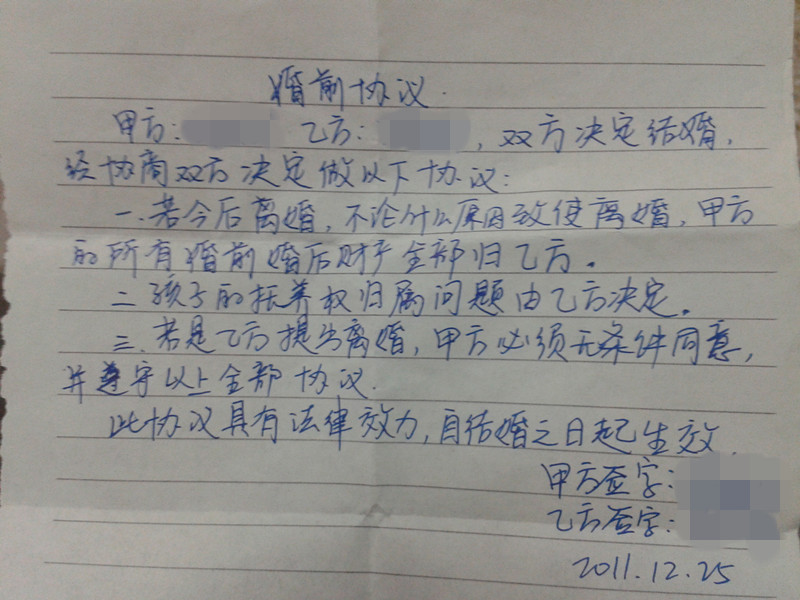 婚前协议.
甲方: 乙方: , 双方决定结婚,
经协商双方决定做以下协议:
一.若今后离婚,不论什么原因致使离婚,甲方
的所有婚前婚后财产全部归乙方。
二.孩子的抚养权归属问题由乙方决定。
三.若是乙方提出离婚,甲方必须无条件同意,
并遵守以上全部协议.
此协议具有法律效力,自结婚之日起生效.
甲方签字:
乙方签字:
2011.12.25